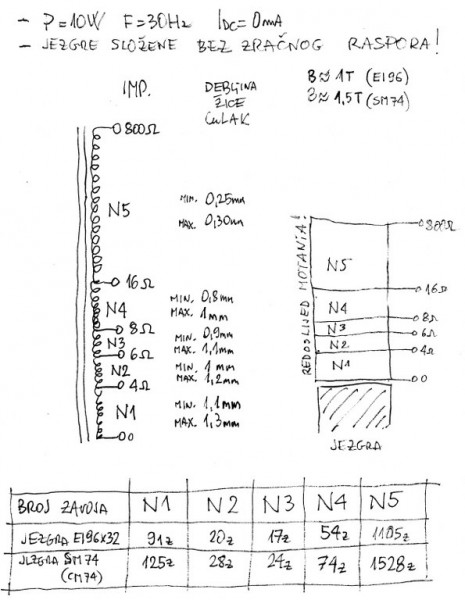 - P=10W F=30Hz IDC=0mA
- JEZGRE SLOŽENE BEZ ZRAČNOG RASPORA!
B≈1T (EI96)
B≈1,5T (SM74)
IMP.
DEBLJINA
ŽICE
CuLAK
800Ω
N5
MIN. 0,25mm
MAX. 0,30mm
16Ω
N4
MIN. 0,8mm
MAX. 1mm
8Ω
N3
MIN. 0,9mm
MAX. 1,1mm
6Ω
N2
MIN. 1mm
MAX. 1,2mm
4Ω
N1
MIN. 1,1mm
MAX. 1,3mm
0
REDOSLIJED MOTANJA!
800Ω
N5
16Ω
N4
8Ω
N3
6Ω
N2
4Ω
N1
0
JEZGRA
BROJ ZAVOJA N1 N2 N3 N4 N5
JEZGRA EI96x32 91z 20z 17z 54z 1105z
JEZGRA SM74 125z 28z 24z 74z 1528z
(CM74)